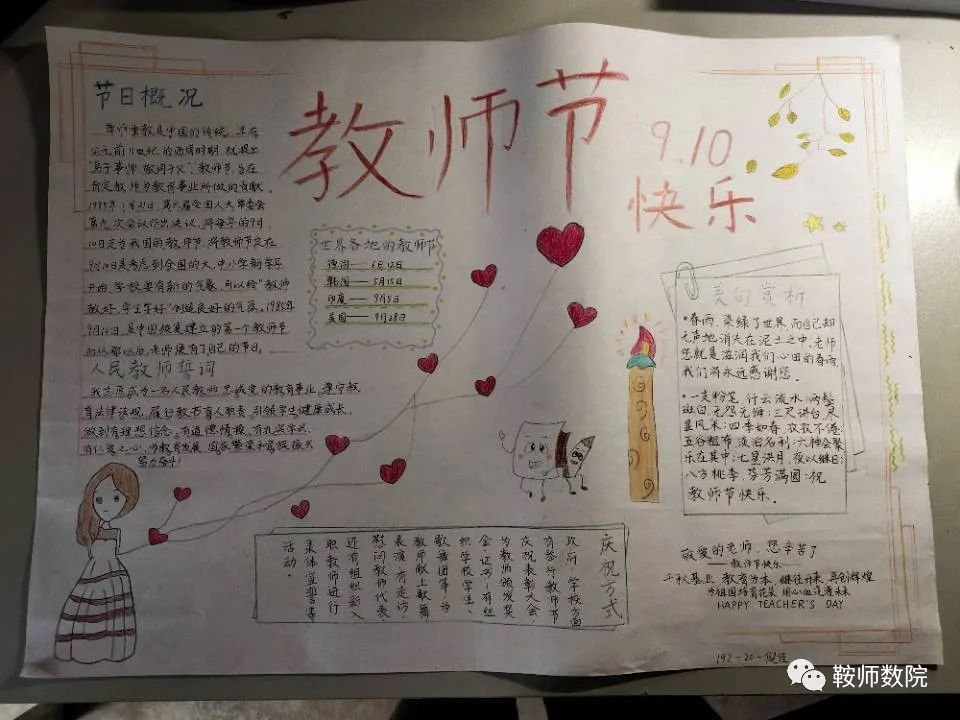 节日概况
尊师重教是中国的传统，早在
公元前11世纪的西周时期，就提出
"弟子事师，敬同于父"，教师节，旨在
肯定教师为教育事业所做的贡献。
1985年1月21日，第六届全国人大常委会
第九次会议作出决议，将每年的9月
10日定为我国的教师节，将教师节定在
9月10日是考虑到全国的大、中小学新学年
开始，学校要有新的气象，可以给"教师
教好，学生学好"创造良好的气氛。1985年
9月10日，是中国恢复建立的第一个教师节
，从那以后，老师便有了自己的节日。
人民教师誓词
我志愿成为一名人民教师，忠诚党的教育事业，遵守教
育法律法规，履行教书育人职责，引领学生健康成长，
做到有理想信念，有道德情操，有扎实学识，
有仁爱之心，为教育发展，国家繁荣和民族振兴
努力奋斗！
教师节
9.10
快乐
世界各地的教师节
德国——6月12日
韩国——5月15日
印度——9月5日
美国——9月28日
美句赏析
•春雨，染绿了世界，而自己却
无声地消失在泥土之中，老师
您就是滋润我们心田的春雨，
我们将永远感谢您。
•一支粉笔，行云流水；两鬓
斑白，无怨无悔；三尺讲台，尽
显风采；四季如春，孜孜不倦；
五谷粗布，淡泊名利；六神会聚
乐在其中；七星洪月，夜以继日；
八方桃李，芬芳满园；祝
教师节快乐。
庆祝方式
政府、学校方面
有举行教师节
庆祝表彰大会，
为教师颁发奖
金、证书；有组
织学校学生、
歌舞团等，为
教师献上歌舞
表演；有走访、
慰问教师代表
还有组织新入
职教师进行
集体宣誓等
活动。
敬爱的老师，您辛苦了
——教师节快乐
千秋基业 教育为本 继往开来 再创辉煌
为祖国培育花朵 用心血浇灌未来
HAPPY TEACHER'S DAY
192-20-倪佳
鞍师数院